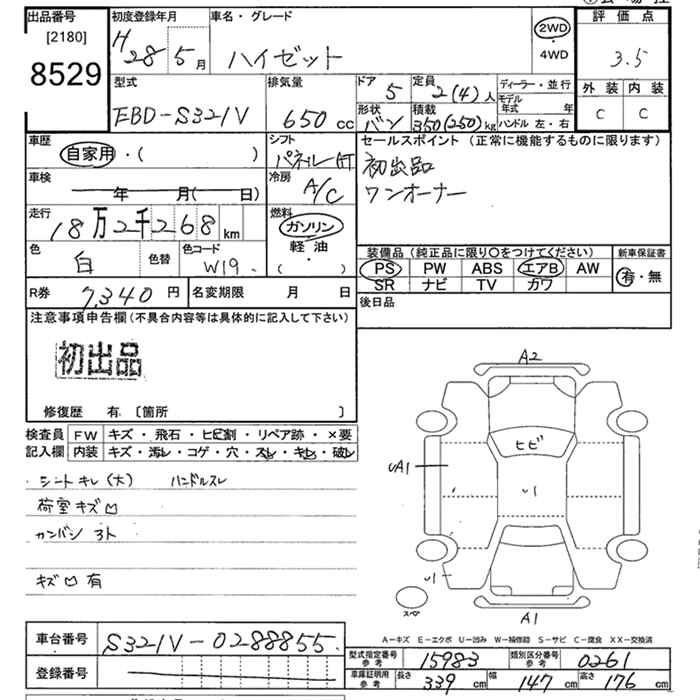 出品番号 初度登録年月 車名・グレード 評価点
[2180] H 28 5月 ハイゼット 2WD ・ 4WD 3.5
8529
型式 排気量 ドア 定員 ディーラー・並行 外装 内装
EBD-S321V 650 cc 5 2(4)人 モデル年式 年 C C
形状 積載 ハンドル 左・右
バン 350(250)kg
車歴 シフト セールスポイント (正常に機能するものに限ります)
自家用・( ) パネル AT 初出品
車検 冷房 ワンオーナー
年 月( 日) A/C
走行 燃料
18万2千268km ガソリン
色 色替 色コード 軽油
白 W19. ( )
装備品 (純正品に限り○をつけてください) 新車保証書
PS PW ABS エアB AW 有・無
SR ナビ TV カワ
R券 7,340円 名変期限 月 日 後日品
注意事項申告欄(不具合内容等は具体的に記入して下さい)
初出品
修復歴 有 〔箇所 〕
検査員 FW キズ・飛石・ヒビ割・リペア跡・×要
記入欄 内装 キズ・汚レ・コゲ・穴・スレ・キレ・破レ
シートキレ(大) ハンドルスレ
荷室キズ凹
カンバン 3ト
キズ凹有
A2
ヒビ
UA1
U1
U1
スペア
A1
A-キズ E-エクボ U-凹み W-補修跡 S-サビ C-腐食 XX-交換済
車台番号 S321V-0288855
型式指定番号 参考 15983 類別区分番号 参考 0261
登録番号
車庫証明用 参考 長さ 339cm 幅 147cm 高さ 176cm